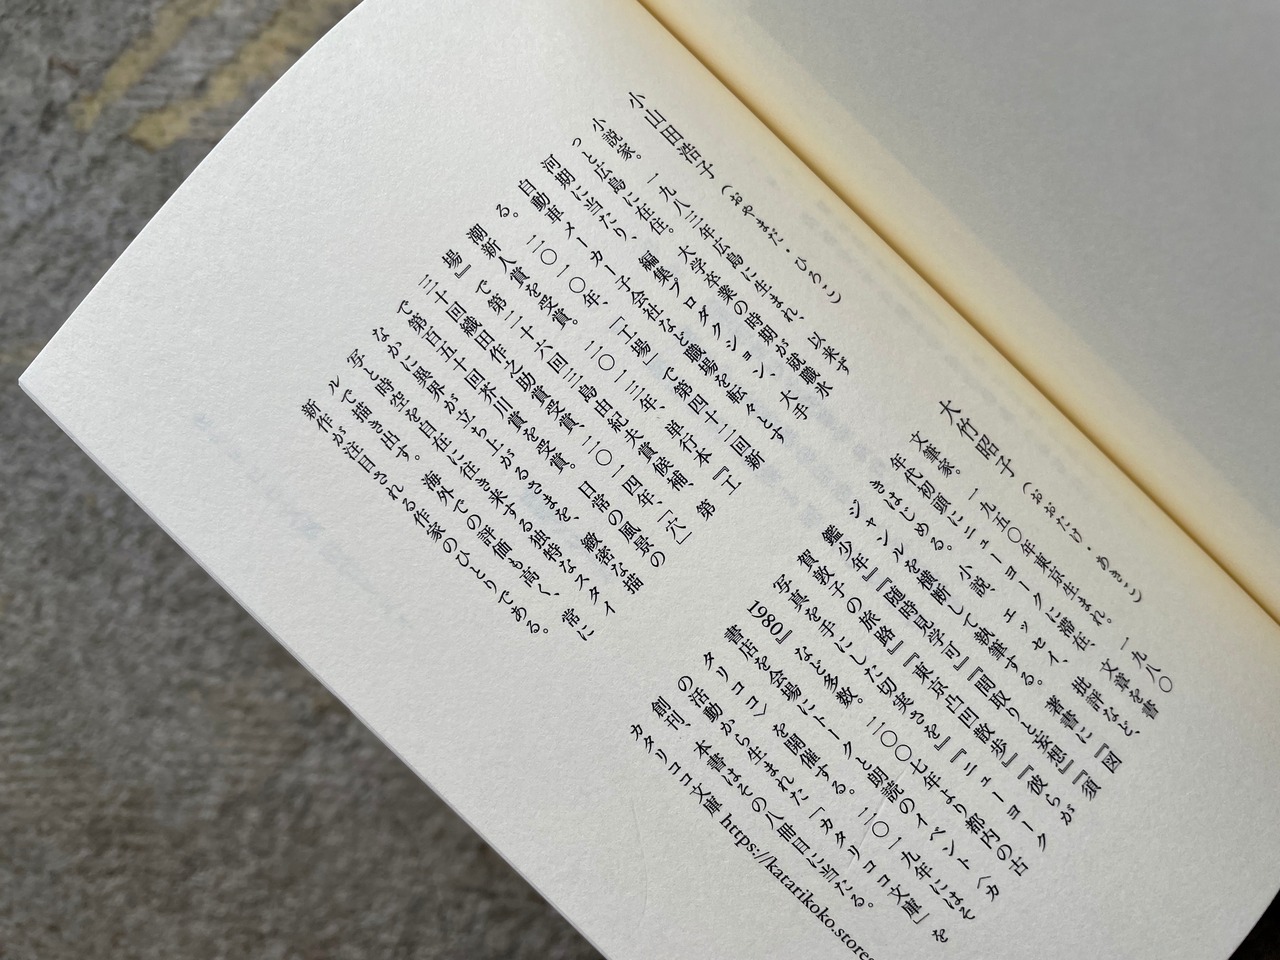 小山田浩子（おやまだ・ひろこ）
小説家。一九八三年広島に生まれ、以来ず
っと広島に在住。大学卒業の時期が就職氷
河期に当たり、編集プロダクション、大手
自動車メーカー子会社など職場を転々とす
る。二〇一〇年、「工場」で第四十二回新
潮新人賞を受賞。二〇一三年、単行本『工
場』で第二十六回三島由紀夫賞候補、第
三十回織田作之助賞受賞、二〇一四年、「穴」
で第百五十回芥川賞を受賞。日常の風景の
なかに異界が立ち上がるさまを、緻密な描
写と時空を自在に往き来する独特なスタイ
ルで描き出す。海外での評価も高く、常に
新作が注目される作家のひとりである。
大竹昭子（おおたけ・あきこ）
文筆家。一九五〇年東京生まれ。一九八〇
年代初頭にニューヨークに滞在、文章を書
きはじめる。小説、エッセイ、批評など、
ジャンルを横断して執筆する。著書に『図
鑑少年』『随時見学可』『間取りと妄想』『須
賀敦子の旅路』『東京凸凹散歩』『彼らが
写真を手にした切実さを』『ニューヨーク
1980』など多数。二〇〇七年より都内の古
書店を会場にトークと朗読のイベント〈カ
タリココ〉を開催する。二〇一九年にはそ
の活動から生まれた「カタリココ文庫」を
創刊、本書はその八冊目に当たる。
カタリココ文庫 https://katarikoko.stores